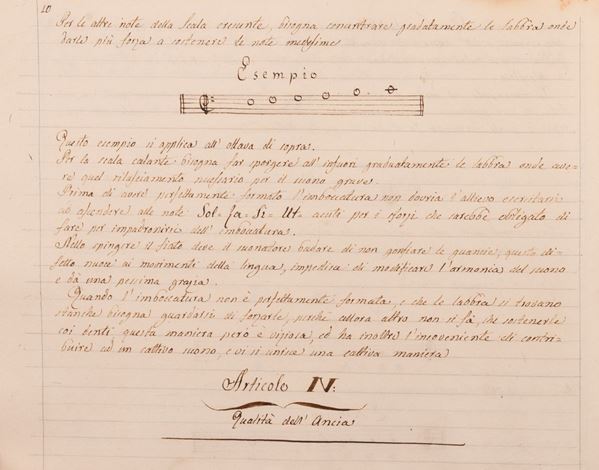 10
Per le altre note della Scala crescente, bisogna concentrare gradatamente le labbra onde
darle più forza a sostenere le note medesime
Esempio
Questo esempio si applica all'ottava di sopra.
Per la scala calante bisogna far sporgere all'infuori graduatamente le labbra onde ave=
re quel rilasciamento necessario per il suono grave.
Prima di avere perfettamente formato l'imboccatura non dovria l'allievo esercitarsi
ad ascendere alle note Sol= la= Si= Ut= acuti per i sforzi che sarebbe obbligato di
fare per impadronirsi dell'imboccatura.
Nello spingere il fiato deve il suonatore badare di non gonfiare le guancie; questo di=
fetto nuoce ai movimenti della lingua, impedisce di modificare l'armonia del suono
e dà una pessima grazia.
Quando l'imboccatura non è perfettamente formata, e che le labbra si trovano
stanche bisogna guardarsi di sonarle, perchè allora altro non si fà, che sostenerle
coi denti questa maniera però è viziosa, ed ha inoltre l'inconveniente di contri=
buire ad un cattivo suono, e vi si unisce una cattiva maniera
Articolo IV.
Qualità dell'Ancia